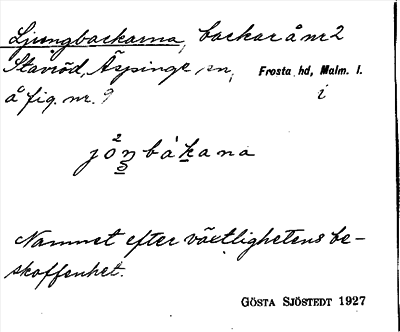 Ljungbackarna, backar å nr 2
Stavröd, Äspinge sn, Frosta hd, Malm. l.
å fig. nr. 9 i
jo²nbàkana
Namnet efter växtlighetens be-
skaffenhet.
GÖSTA SJÖSTEDT 1927